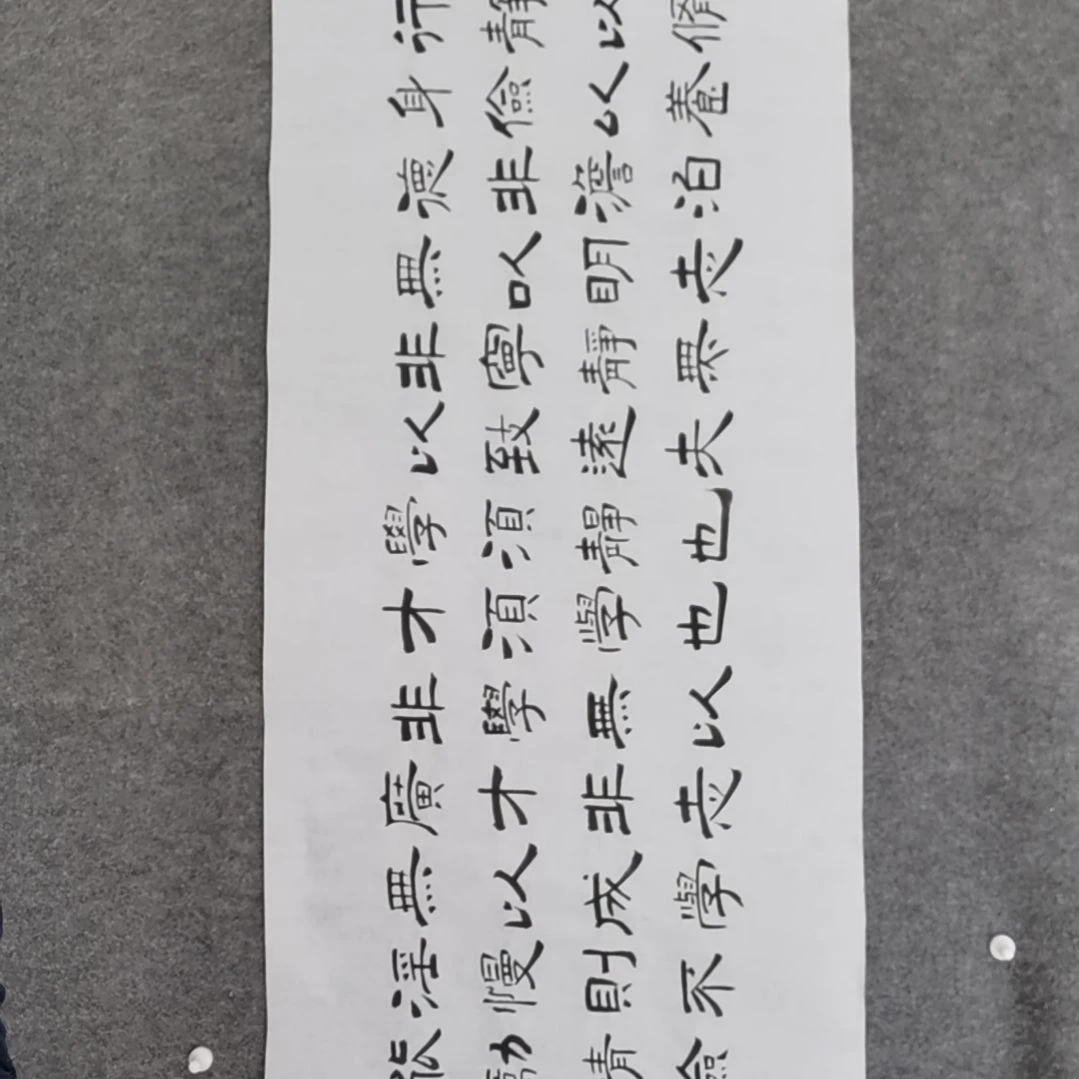 行靜以脩
身儉以養
德非澹泊
無以明志
非寧靜無
以致遠夫
學須靜也
才須學也
非學無以
廣才非志
無以成學
淫慢則不